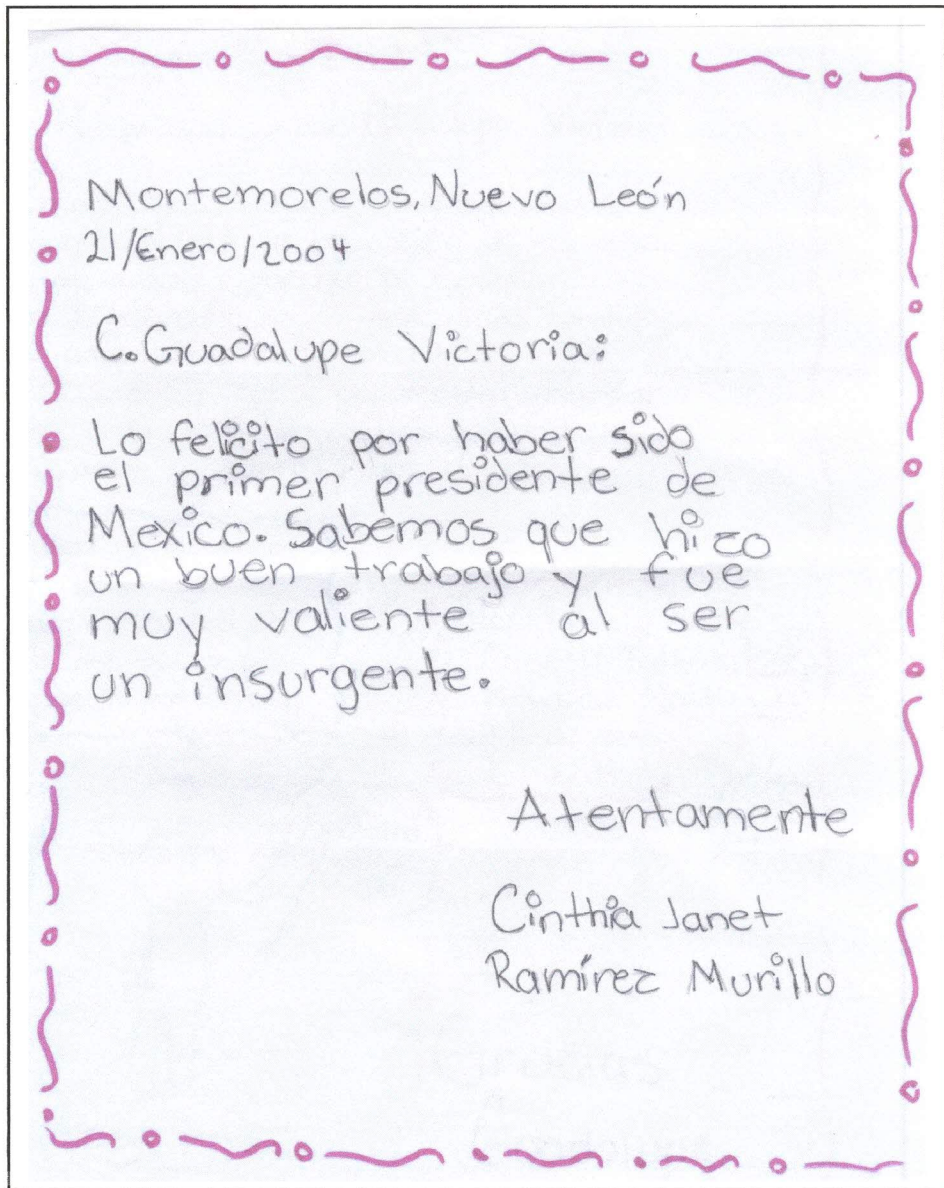 Montemorelos, Nuevo León
21/Enero/2004
C. Guadalupe Victoria:
Lo felicito por haber sido
el primer presidente de
Mexico. Sabemos que hizo
un buen trabajo y fue
muy valiente al ser
un insurgente.
Atentamente
Cinthia Janet
Ramírez Murillo